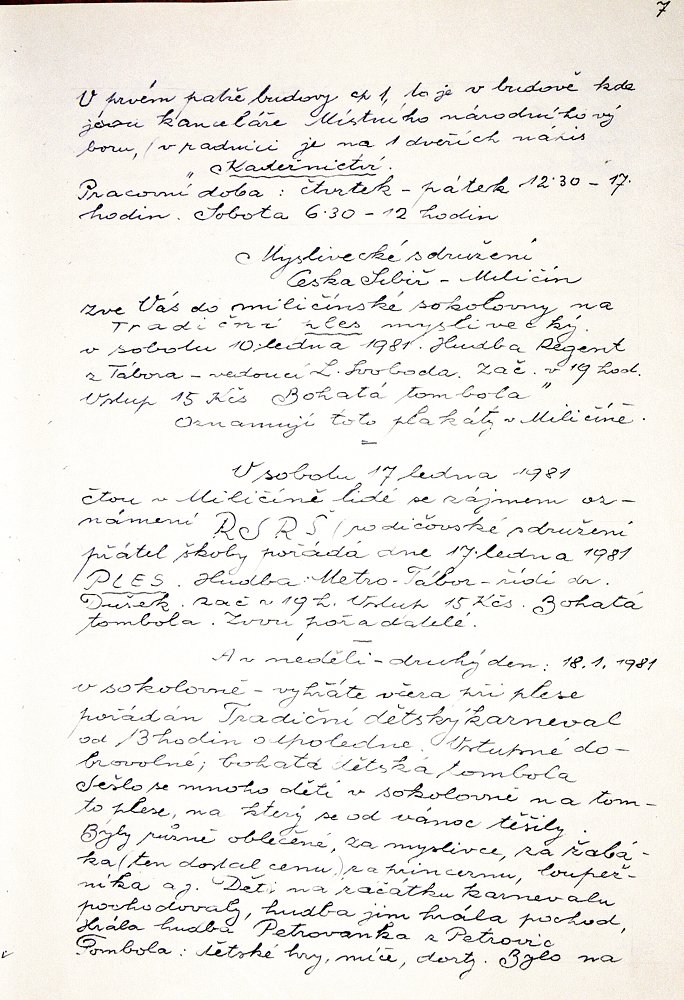 7
V prvém patře budovy čp 1, to je v budově kde
jsou kanceláře Místního národního vý
boru, (v radnici je na 1 dveřích nápis
"Kadeřnictví.
Pracovní doba: čtvrtek - pátek 12.30 - 17.
hodin. Sobota 6.30 - 12 hodin
Myslivecké sdružení
Česká Sibiř - Miličín
zve Vás do miličínské sokolovny na
Tradiční ples myslivecký.
v sobotu 10 ledna 1981. Hudba Regent
z Tábora - vedoucí L. Svoboda. Zač. v 19 hod.
Vstup 15 Kčs Bohatá tombola"
Oznamují toto plakáty v Miličíně.
=
V sobotu 17 ledna 1981
čtou v Miličíně lidé se zájmem oz-
námení RSRŠ (rodičovské sdružení
přátel školy pořádá dne 17. ledna 1981
PLES. Hudba: Metro - Tábor - řídí dr.
Dušek. zač v 19 h. Vstup 15 Kčs. Bohatá
tombola. Zvou pořadatelé.
A v neděli - druhý den: 18.1.1981
v sokolovně - vyhřáté včera při plese
pořádán Tradiční dětský karneval
od 13 hodin odpoledne. Vstupné do-
brovolné; bohatá dětská tombola
Sešlo se mnoho dětí v sokolovně na tom-
to plese, na který se od vánoc těšily.
Byly různě oblečené, za myslivce, za žabá-
ka (ten dostal cenu) za princeznu, loupež-
níka a j. Děti na začátku karnevalu
pochodovaly, hudba jim hrála pochod,
Hrála hudba Petrovanka z Petrovic
Tombola: dětské hry, míče, dorty. Bylo na